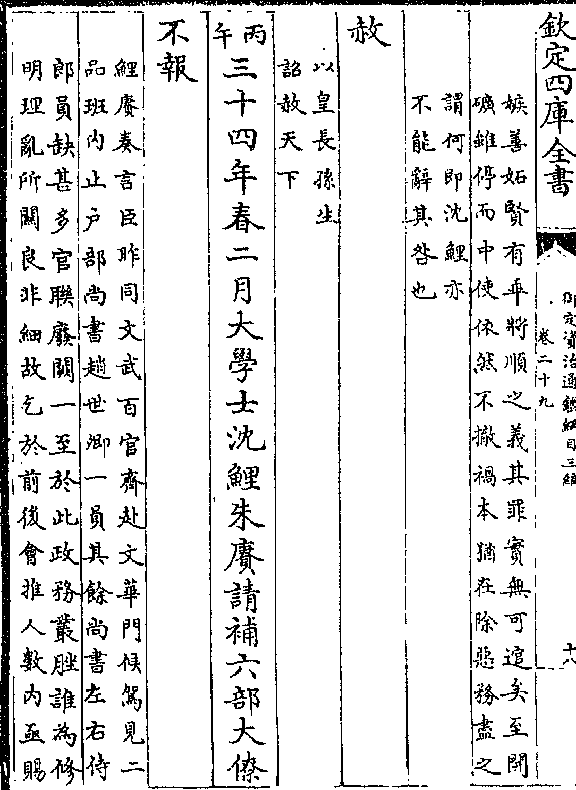 欽定四庫全書
御定資治通鑑綱目三編
卷二十九
十八
嫉善妬賢有乖將順之義其罪實無可逭矣至開
礦雖停而中使依然不撤禍本猶在除惡務盡之
謂何即沈鯉亦
不能辭其咎也
赦
以皇長孫生
詔赦天下
丙午
三十四年春二月大學士沈鯉朱賡請補六部大僚
不報
鯉賡奏言臣昨同文武百官齊赴文華門候駕見二
品班内止户部尚書趙世卿一員其餘尚書左右侍
郎員缺甚多官聯廢闕一至於此政務叢脞誰為修
明理亂所關良非細故乞於前後會推人數内亟賜